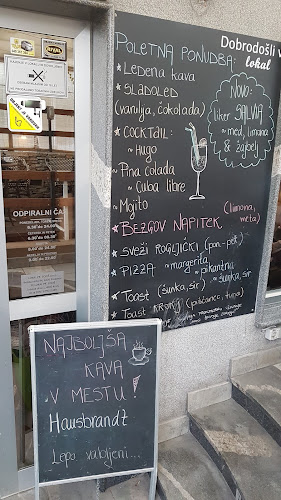 POLETNA PONUDBA:
Dobrodošli v
lokal
* Ledena kava
* SLADOLED
(vanilja, čokolada)
* COCKTAIL:
~ Hugo
~ Pina colada
~ Cuba libre
~ Mojito
NOVO:
liker SALVIA
~ med, limona
& žajbelj
* BEZGOV NAPITEK (limona,
meta)
* SVEŽI ROGLJIČKI (pon-pet)
* PIZZA ~ margerita
~ pikantna
~ šunka, sir
* Toast (šunka, sir)
* Toast KRUHKI (piščanec, tuna)
ODPIRALNI ČAS
NAJBOLJŠA
KAVA
V MESTU!
Hausbrandt
Lepo vabljeni...